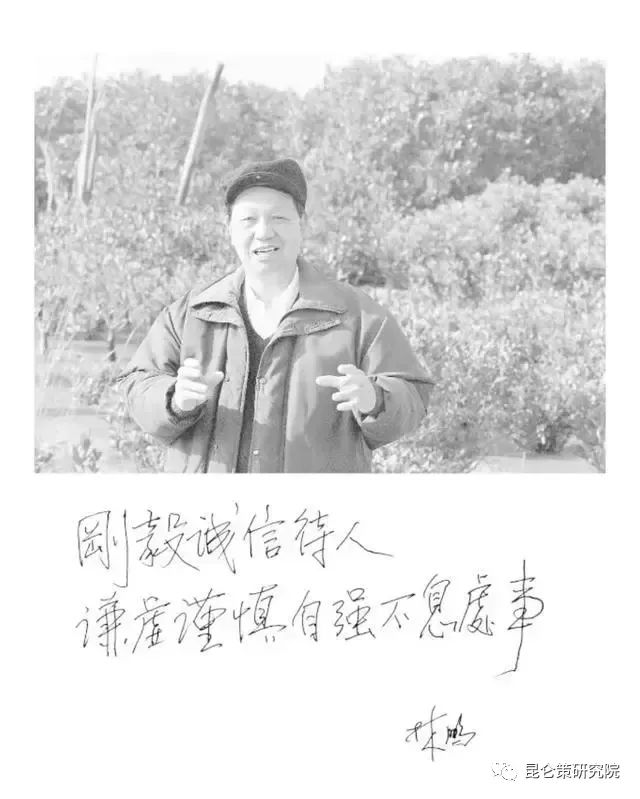 剛毅诚信待人
谦虚谨慎自强不息處事
林鹏
昆仑策研究院